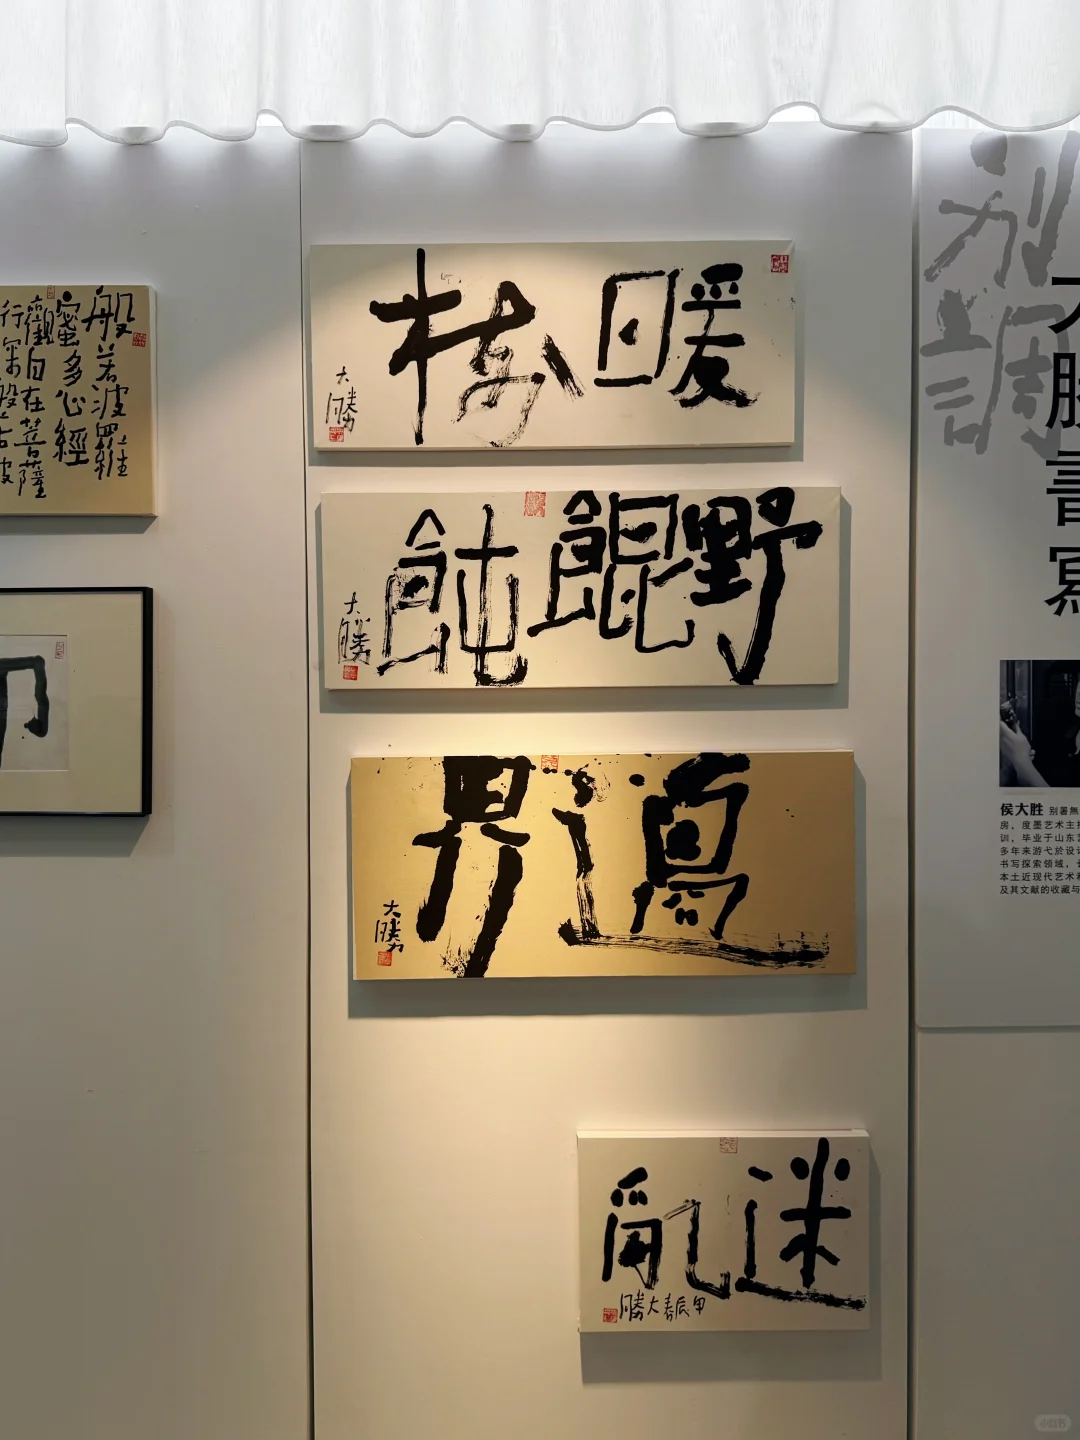 般若波羅
蜜多心經
觀自在菩薩
行深般若波
暖
大勝
野餛飩
大勝
邊界
大勝
迷亂
甲辰春大勝
別調
大勝書寫
侯大胜 别署無
房，度墨艺术主
训，毕业于山东
多年来游弋於设
书写探索领域，
本土近现代艺术
及其文献的收藏与